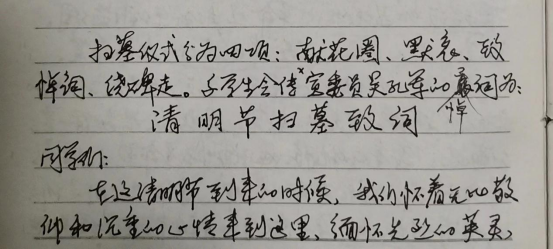 扫墓仪式分为四项：献花圈、默哀、致
悼词、绕碑走。学生会传宣委员吴孔军的悼词为：
清明节扫墓致词
同学们：
在这清明节到来的时候，我们怀着无比敬
仰和沉重的心情来到这里、缅怀先烈的英灵、